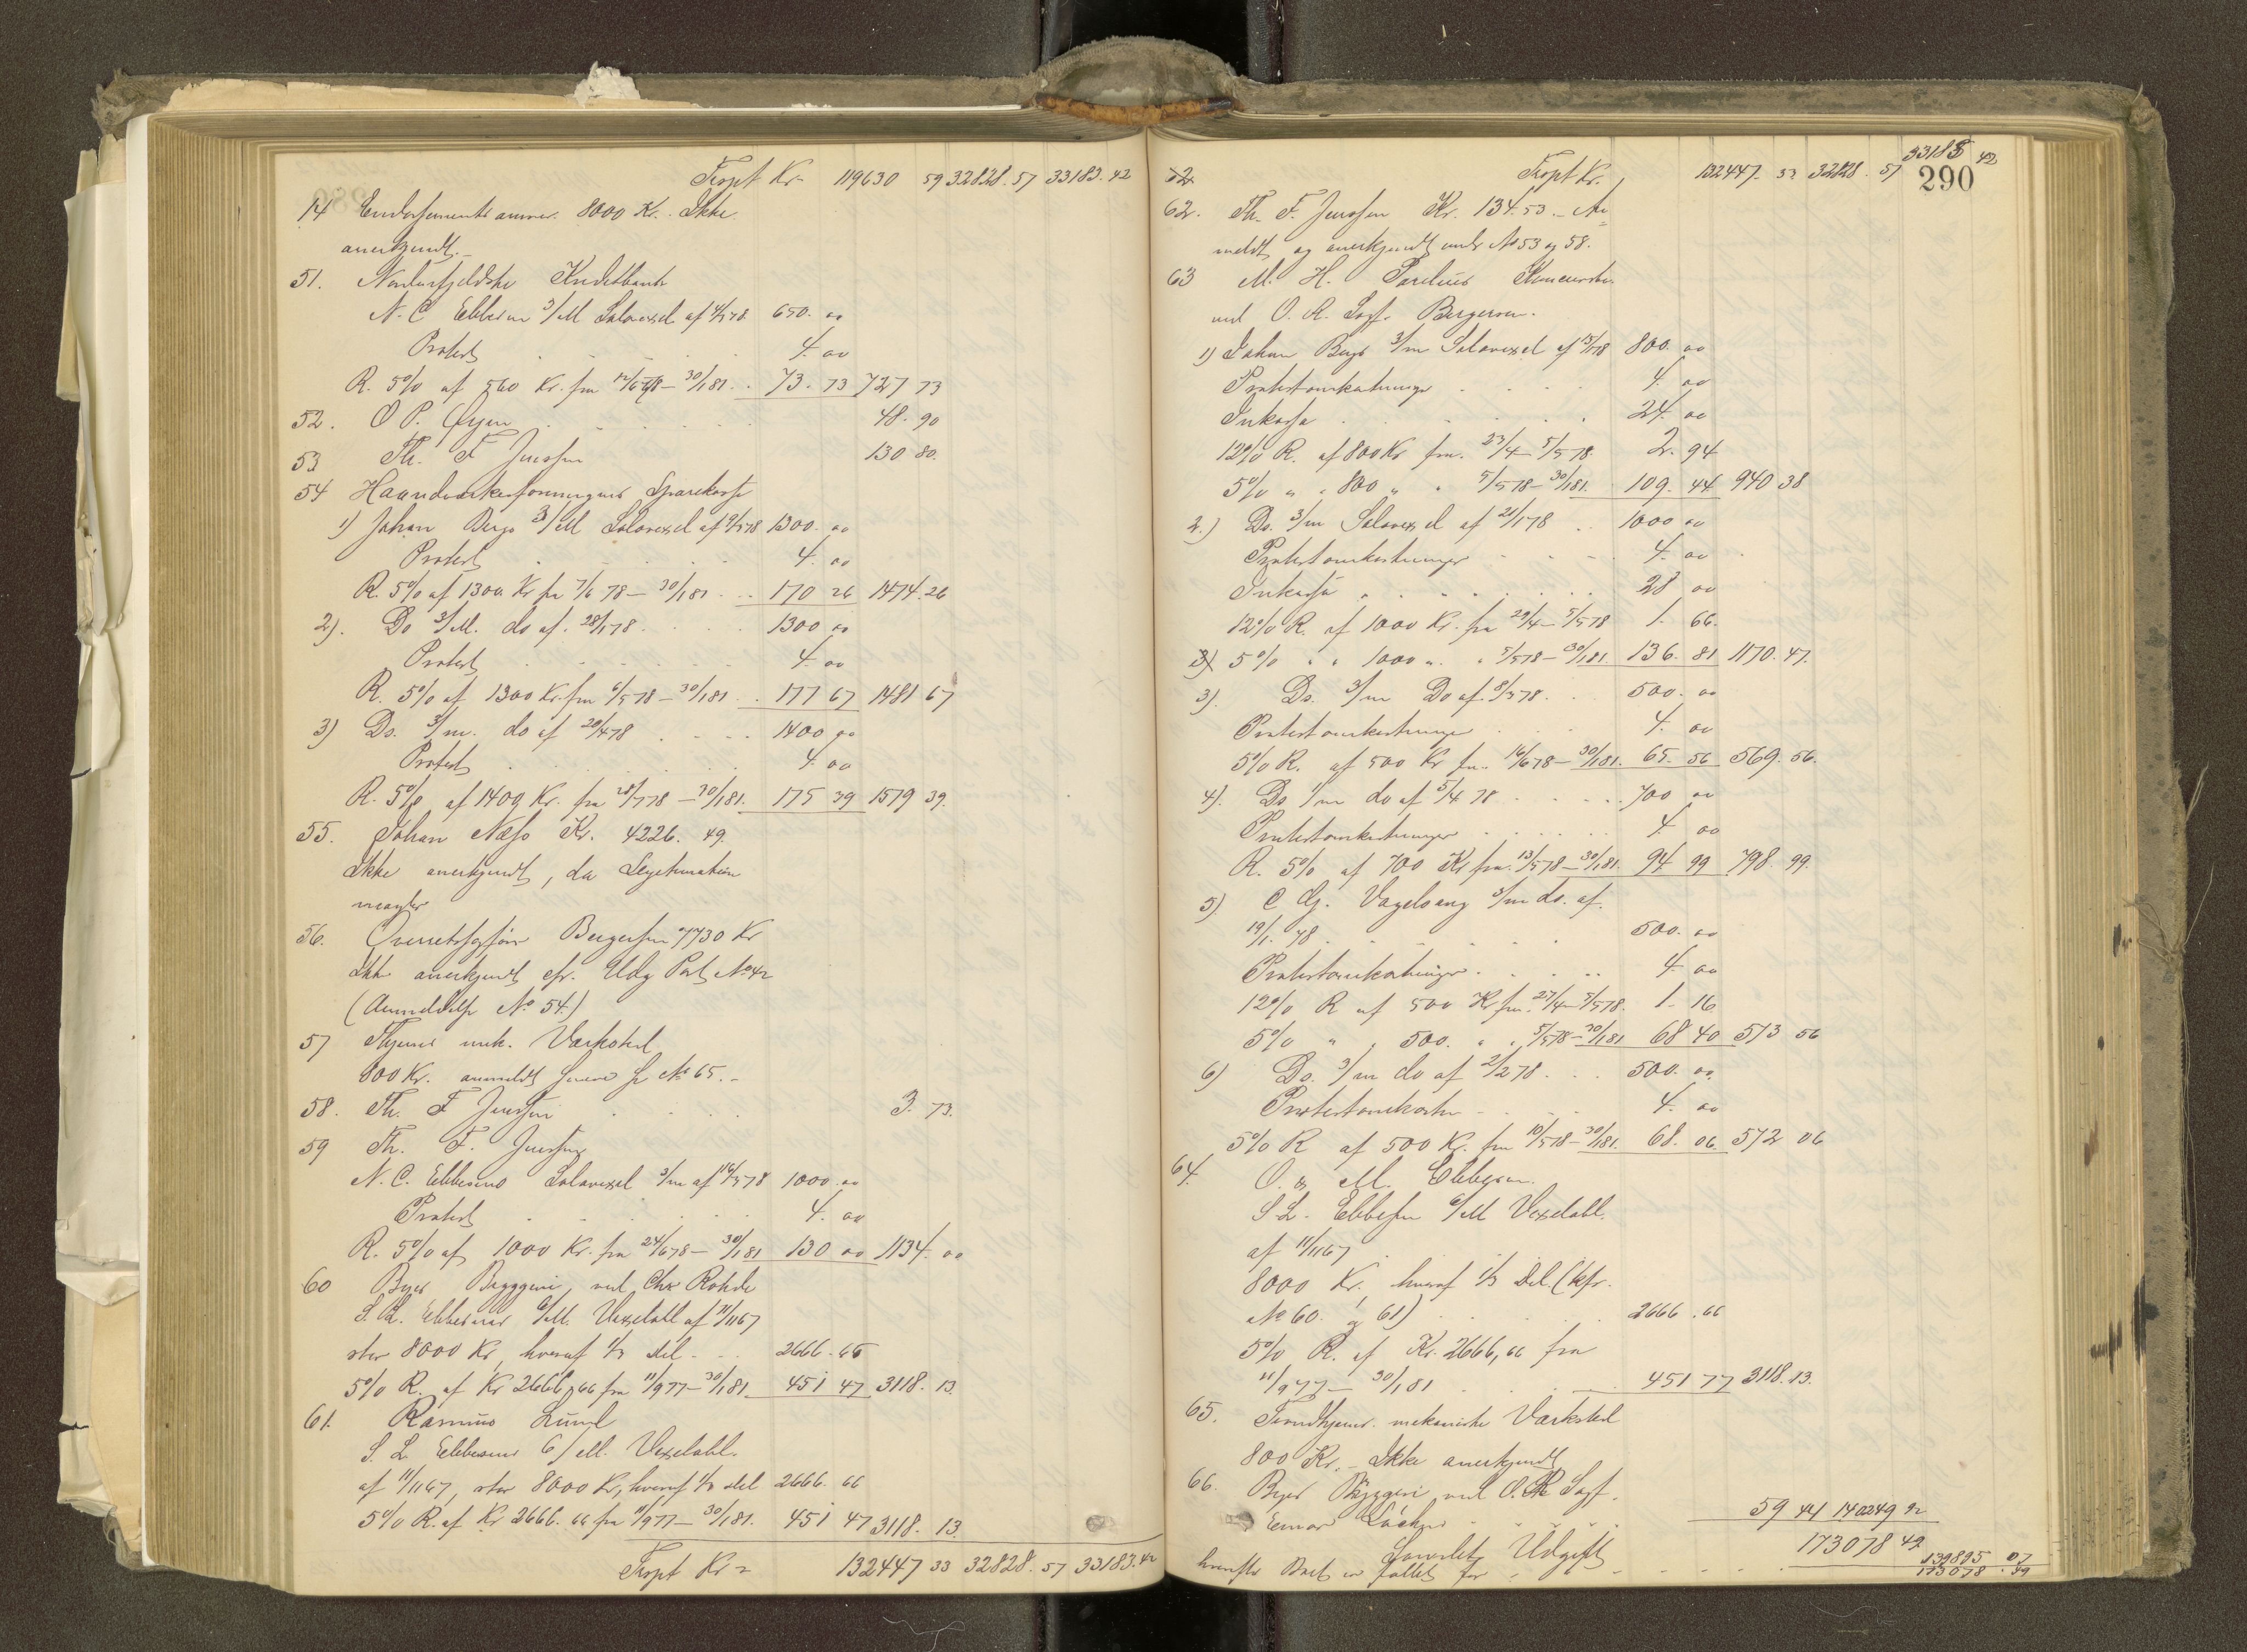 Trspt Kr. 119630 59 32828. 57 33183. 42
14 Endossements annm. 8000 Kr. Ikke
anerkjendt.
51. Nordenfjeldske Kreditbank
N. C. Ebbesens 3/M Solavexel af 650. 00
Protest 4. 00
R. 5% af 560 Kr. fra 12/6 78 - 30/1 81. 73. 73 727 73
52. O P. Øyen 48. 90
53 Th. F Jenssen 130 80.
54 Haandværkerforeningens Sparekasse
1) Johan Bergs 3/M Solavexel af 1300. 00
Protest 4. 00
R. 5% af 1300 Kr fra 7/6 78 - 30/1 81 170 26 1474. 26
2). Do 3/M. do af. 28/1 78 1300 00
Protest 4. 00
R. 5% af 1300 Kr. fra 6/5 78 - 30/1 81 177 67 1481 67
3) Do. 3/m. do af 20/4 78 1400 00
Protest 4 00
R. 5% af 1400 Kr. fra 28/7 78 - 30/1 81. 175 39 1579 39.
55. Johan Næss Kr. 4226. 49.
Ikke anerkjendt, da Legitimation
mangler
56. Overretssagfører Bergersen 7730 Kr
Ikke anerkjendt cfr. Udg Post No 42
(Anmeldelse No 54.)
57 Thjems mek. Værksted
800 Kr. anmeldt senere No 65. -
58. Th. F Jenssen 3. 73.
59 Th. F. Jenssen
N. C. Ebbesens Solavexel 3/m af 1000. 00
Protest 4. 00
R. 5% af 1000 Kr. fra 24/6 78 - 30/1 81 130 00 1134. 00
60 Byes Bryggeri ved Chr Rohde
S. L. Ebbesens 6/M. Vexelobl af 11/11 67
stor 8000 Kr, hveraf 1/3 del 2666. 66
5% R. af Kr 2666,66 fra 11/9 77 - 30/1 81. 451 47 3118. 13.
61. Rasmus Lund
S. L Ebbesens 6/M. Vexelobl.
af 11/11 67, stor 8000 Kr, hveraf 1/3 del 2666. 66
5% R. af Kr 2666. 66 fra 11/9 77 - 30/1 81. 451 47 3118. 13.
Trspt Kr 132447 33 32828. 57 33183. 42
62 Trspt Kr. 132447. 33 32828. 57 33183 42
290
62. Th. F. Jenssen Kr. 134. 53. - An=
meldt og anerkjendt under No 53 og 58.
63 M. H. Parelius
ved O. R. Sagf. Bergersen.
1) Johan Bergs 3/m Solavexel af 800. 00
Protestomkostninger 4. 00
Inkasso 24. 00
12% R. af 800 Kr fra. 23/4 - 5/5 78. 2. 94
5% " " 800 " " 5/5 78 - 30/1 81. 109. 44 940 38
2.) Do. 3/m Solavexel af 21/1 78 1000 00
Protestomkostninger 4. 00
Inkasso 28 00
12% R. af 1000 Kr. fra 29/4 - 5/5 78 1. 66.
3) 5% " " 1000 " " 5/5 78 - 30/1 81 136. 81 1170. 47.
3). Do. 3/m Do af. 8/3 78. 500. 00
Protestomkostninger 4. 00
5% R. af 500 Kr fra. 16/6 78 - 30/1 81. 65. 56 569. 56.
4). Do 1/m do af 5/4 78 700 00
Protestomkostninger 4. 00
R. 5% af 700 Kr fra. 13/5 78 - 30/1 81. 94 99 798. 99.
5) C G. Vogelsang 3/m do. af.
19/1. 78 500. 00
Protestomkostninger. 4. 00
12% R af 500 Kr fra. 27/4 - 5/5 78. 1. 16
5% " " 500. " " 5/5 78 - 30/1 81 68 40 573 56
6) Do. 3/m do af 2/2 78. 500. 00.
Protestomkostn 4. 00
5% R af 500 Kr. fra 10/5 78 - 30/1 81. 68. 06. 572 06
64. O. & M. Ebbesen.
S L. Ebbesen 6/M Vexelobl.
af 11/11 67
8000 Kr. hveraf 1/3 del (kfr.
No 60. og 61) 2666. 66
5% R. af Kr. 2666,66 fra
11/9 77 - 30/1 81 451 77 3118. 13.
65. Trondhjems mekaniske Værksted
800 Kr. - Ikke anerkjendt
66. Byes Bryggeri ved O. R Sagf.
Lücker 59 44 140249 92
Samlet Udgift 173078 49
139895 07
hvorefter Boet er 173078. 49